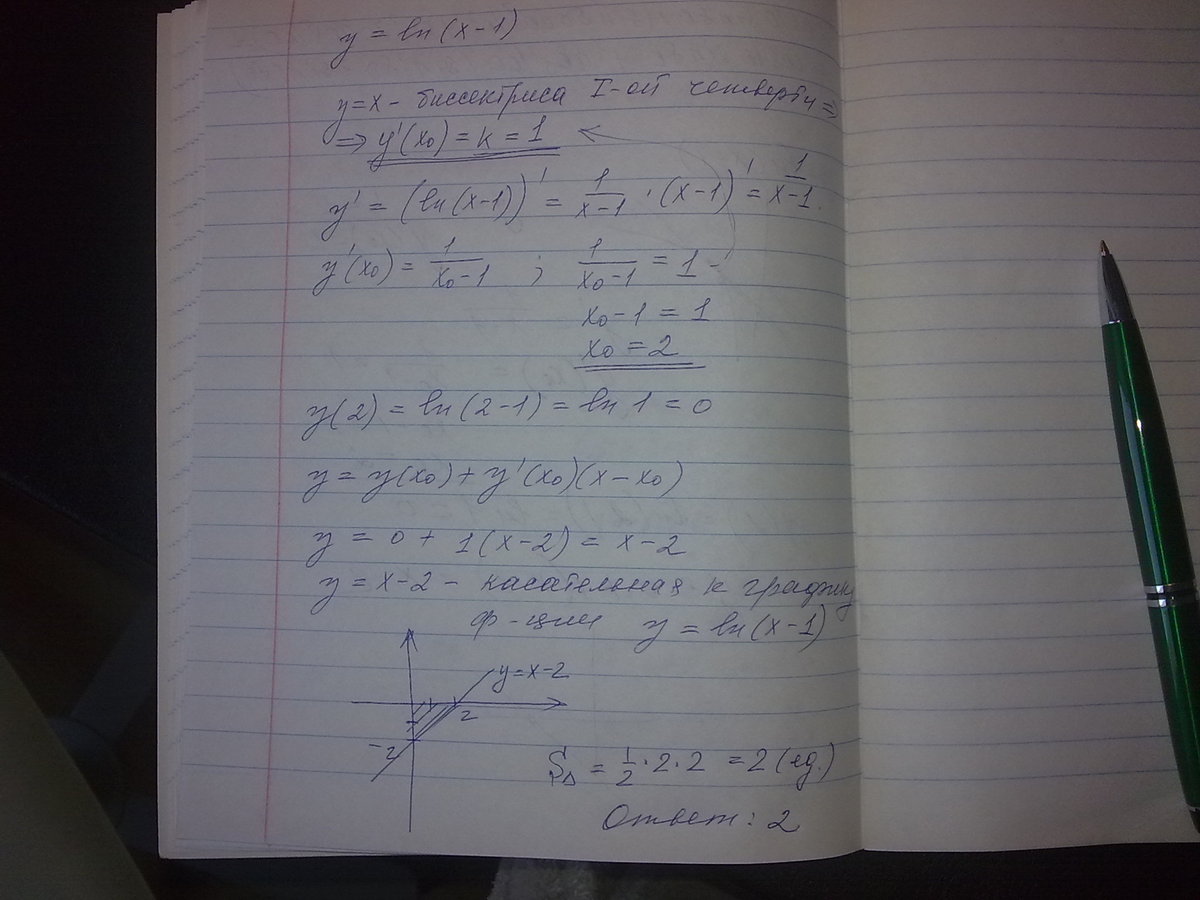 y = ln(x-1)
y=x - биссектриса I-ой четверти ⇒
⇒ y'(x₀) = k = 1
y' = (ln(x-1))' = 1/(x-1) · (x-1)' = 1/(x-1).
y'(x₀) = 1/(x₀-1) ; 1/(x₀-1) = 1
x₀-1 = 1
x₀ = 2
y(2) = ln(2-1) = ln 1 = 0
y = y(x₀) + y'(x₀)(x-x₀)
y = 0 + 1(x-2) = x-2
y = x-2 - касательная к графику
ф-ции y = ln(x-1)
y=x-2
2
-2
S△ = 1/2 · 2 · 2 = 2 (ед.)
Ответ: 2